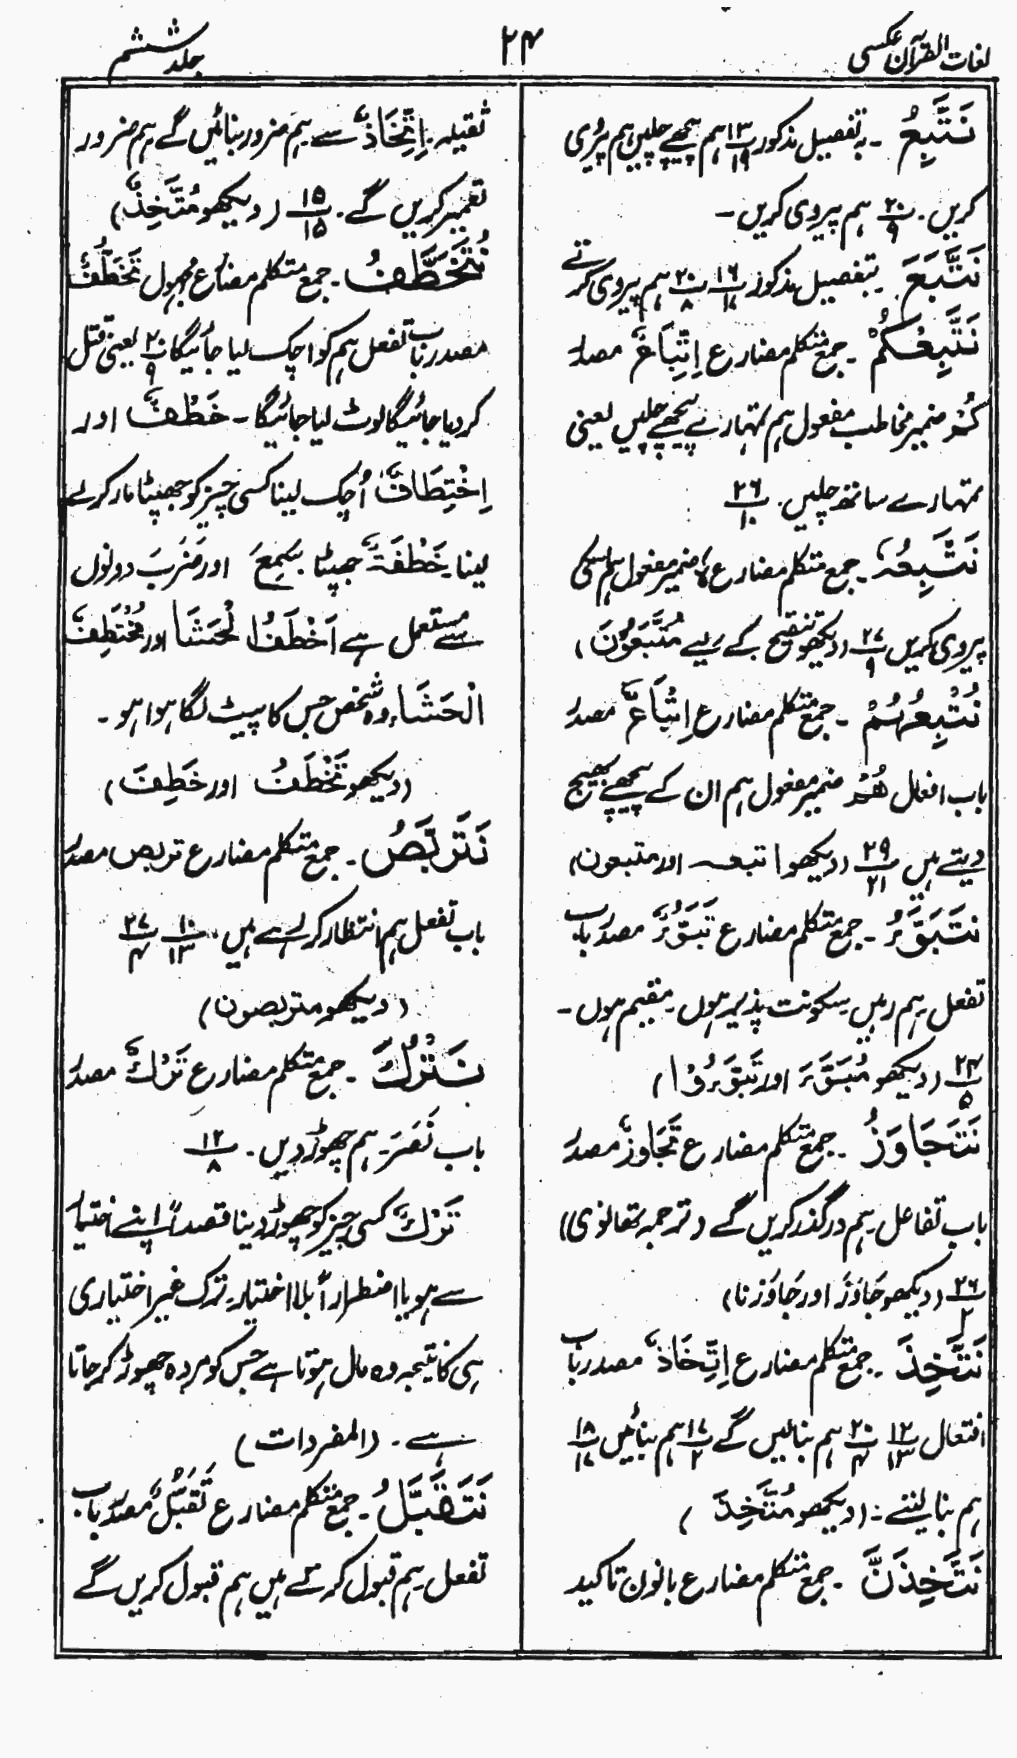 لغات القرآن عکسی
۲۴
جلد ششم
نَتَّبِعُ ۔ بہ تفصیل مذکور ۱۳/۱۹ ہم پیچھے چلیں ہم پیروی
کریں ۔ ۲۰/۹ ہم پیروی کریں ۔
نَتَّبِعَ ۔ بتفصیل مذکور ۱۶/۱۷ ۲۰/۸ ہم پیروی کرتے
نَتَّبِعُكُمْ ۔ جمع متکلم مضارع اِتِّبَاعٌ مصدر
كُمْ ضمیر مخاطب مفعول ہم تمہارے پیچھے چلیں یعنی
تمہارے ساتھ چلیں ۔ ۲۶/۱۰
نَتَّبِعْہُ ۔ جمع متکلم مضارع ہُ ضمیر مفعول ہم اسکی
پیروی کریں ۲۷/۹ (دیکھو تنقیح کے لیے مُتَّبَعُوْنَ)
نُتْبِعُہُمْ ۔ جمع متکلم مضارع اِتْبَاعٌ مصدر
باب افعال ھُمْ ضمیر مفعول ہم ان کے پیچھے بھیج
دیتے ہیں ۲۹/۲۱ (دیکھو اتبعہ اور متبعون)
نَتَبَوَّءُ ۔ جمع متکلم مضارع تَبَوُّءٌ مصدر باب
تفعل ہم رہیں سکونت پذیر ہوں ۔ مقیم ہوں ۔
۲۴/۵ (دیکھو مُبَوَّءَ اور تَبَوَّءُوْا)
نَتَجَاوَزُ ۔ جمع متکلم مضارع تَجَاوُزٌ مصدر
باب تفاعل ہم درگذر کریں گے (ترجمہ تھانوی)
۲۶/۲ (دیکھو جَاوَزَ اور جَاوَزْنَا)
نَتَّخِذَ ۔ جمع متکلم مضارع اِتِّخَاذٌ مصدر باب
افتعال ۱۲/۱۳ ۲۰/۴ ہم بنائیں گے ۱۷/۲ ہم بنائیں ۱۸/۱۷
ہم بنا لیتے ۔ (دیکھو مُتَّخِذَ)
نَتَّخِذَنَّ ۔ جمع متکلم مضارع بانون تاکید
ثقیلہ ۔ اِتِّخَاذٌ سے ہم ضرور بنائیں گے ہم ضرور
تعمیر کریں گے ۔ ۱۵/۱۵ (دیکھو مُتَّخِذٌ)
نُتَخَطَّفُ ۔ جمع متکلم مضارع مجہول تَخَطُّفٌ
مصدر باب تفعل ہم کو اچک لیا جائیگا ۲۰/۹ یعنی قتل
کر دیا جائیگا لوٹ لیا جائیگا ۔ خَطْفٌ اور
اِخْتِطَافٌ اُچک لینا کسی چیز کو جھپٹا مار کر لے
لینا ۔ خَطْفَۃٌ جھپٹا سَمِعَ اور ضَرَبَ دونوں
سے مستعمل ہے اَخْطَفُ الْحَشَا اور مُخْتَطِفٌ
الْحَشَاء وہ شخص جس کا پیٹ لگا ہوا ہو ۔
(دیکھو تَخْطَفُ اور خَطِفَ)
نَتَرَبَّصُ ۔ جمع متکلم مضارع تربص مصدر
باب تفعل ہم انتظار کر رہے ہیں ۱۰/۱۳ ۲۷/۴
(دیکھو متربصون)
نَتْرُكَ ۔ جمع متکلم مضارع تَرْكٌ مصدر
باب نَصَرَ ۔ ہم چھوڑ دیں ۔ ۱۲/۸
تَرْكٌ کسی چیز کو چھوڑ دینا قصداً اپنے اختیار
سے ہو یا اضطراراً بلا اختیار ۔ ترک غیر اختیاری
ہی کا نتیجہ وہ مال ہوتا ہے جس کو مردہ چھوڑ کر جاتا
ہے ۔ (المفردات)
نَتَقَبَّلُ ۔ جمع متکلم مضارع تَقَبُّلٌ مصدر باب
تفعل ہم قبول کرتے ہیں ہم قبول کریں گے